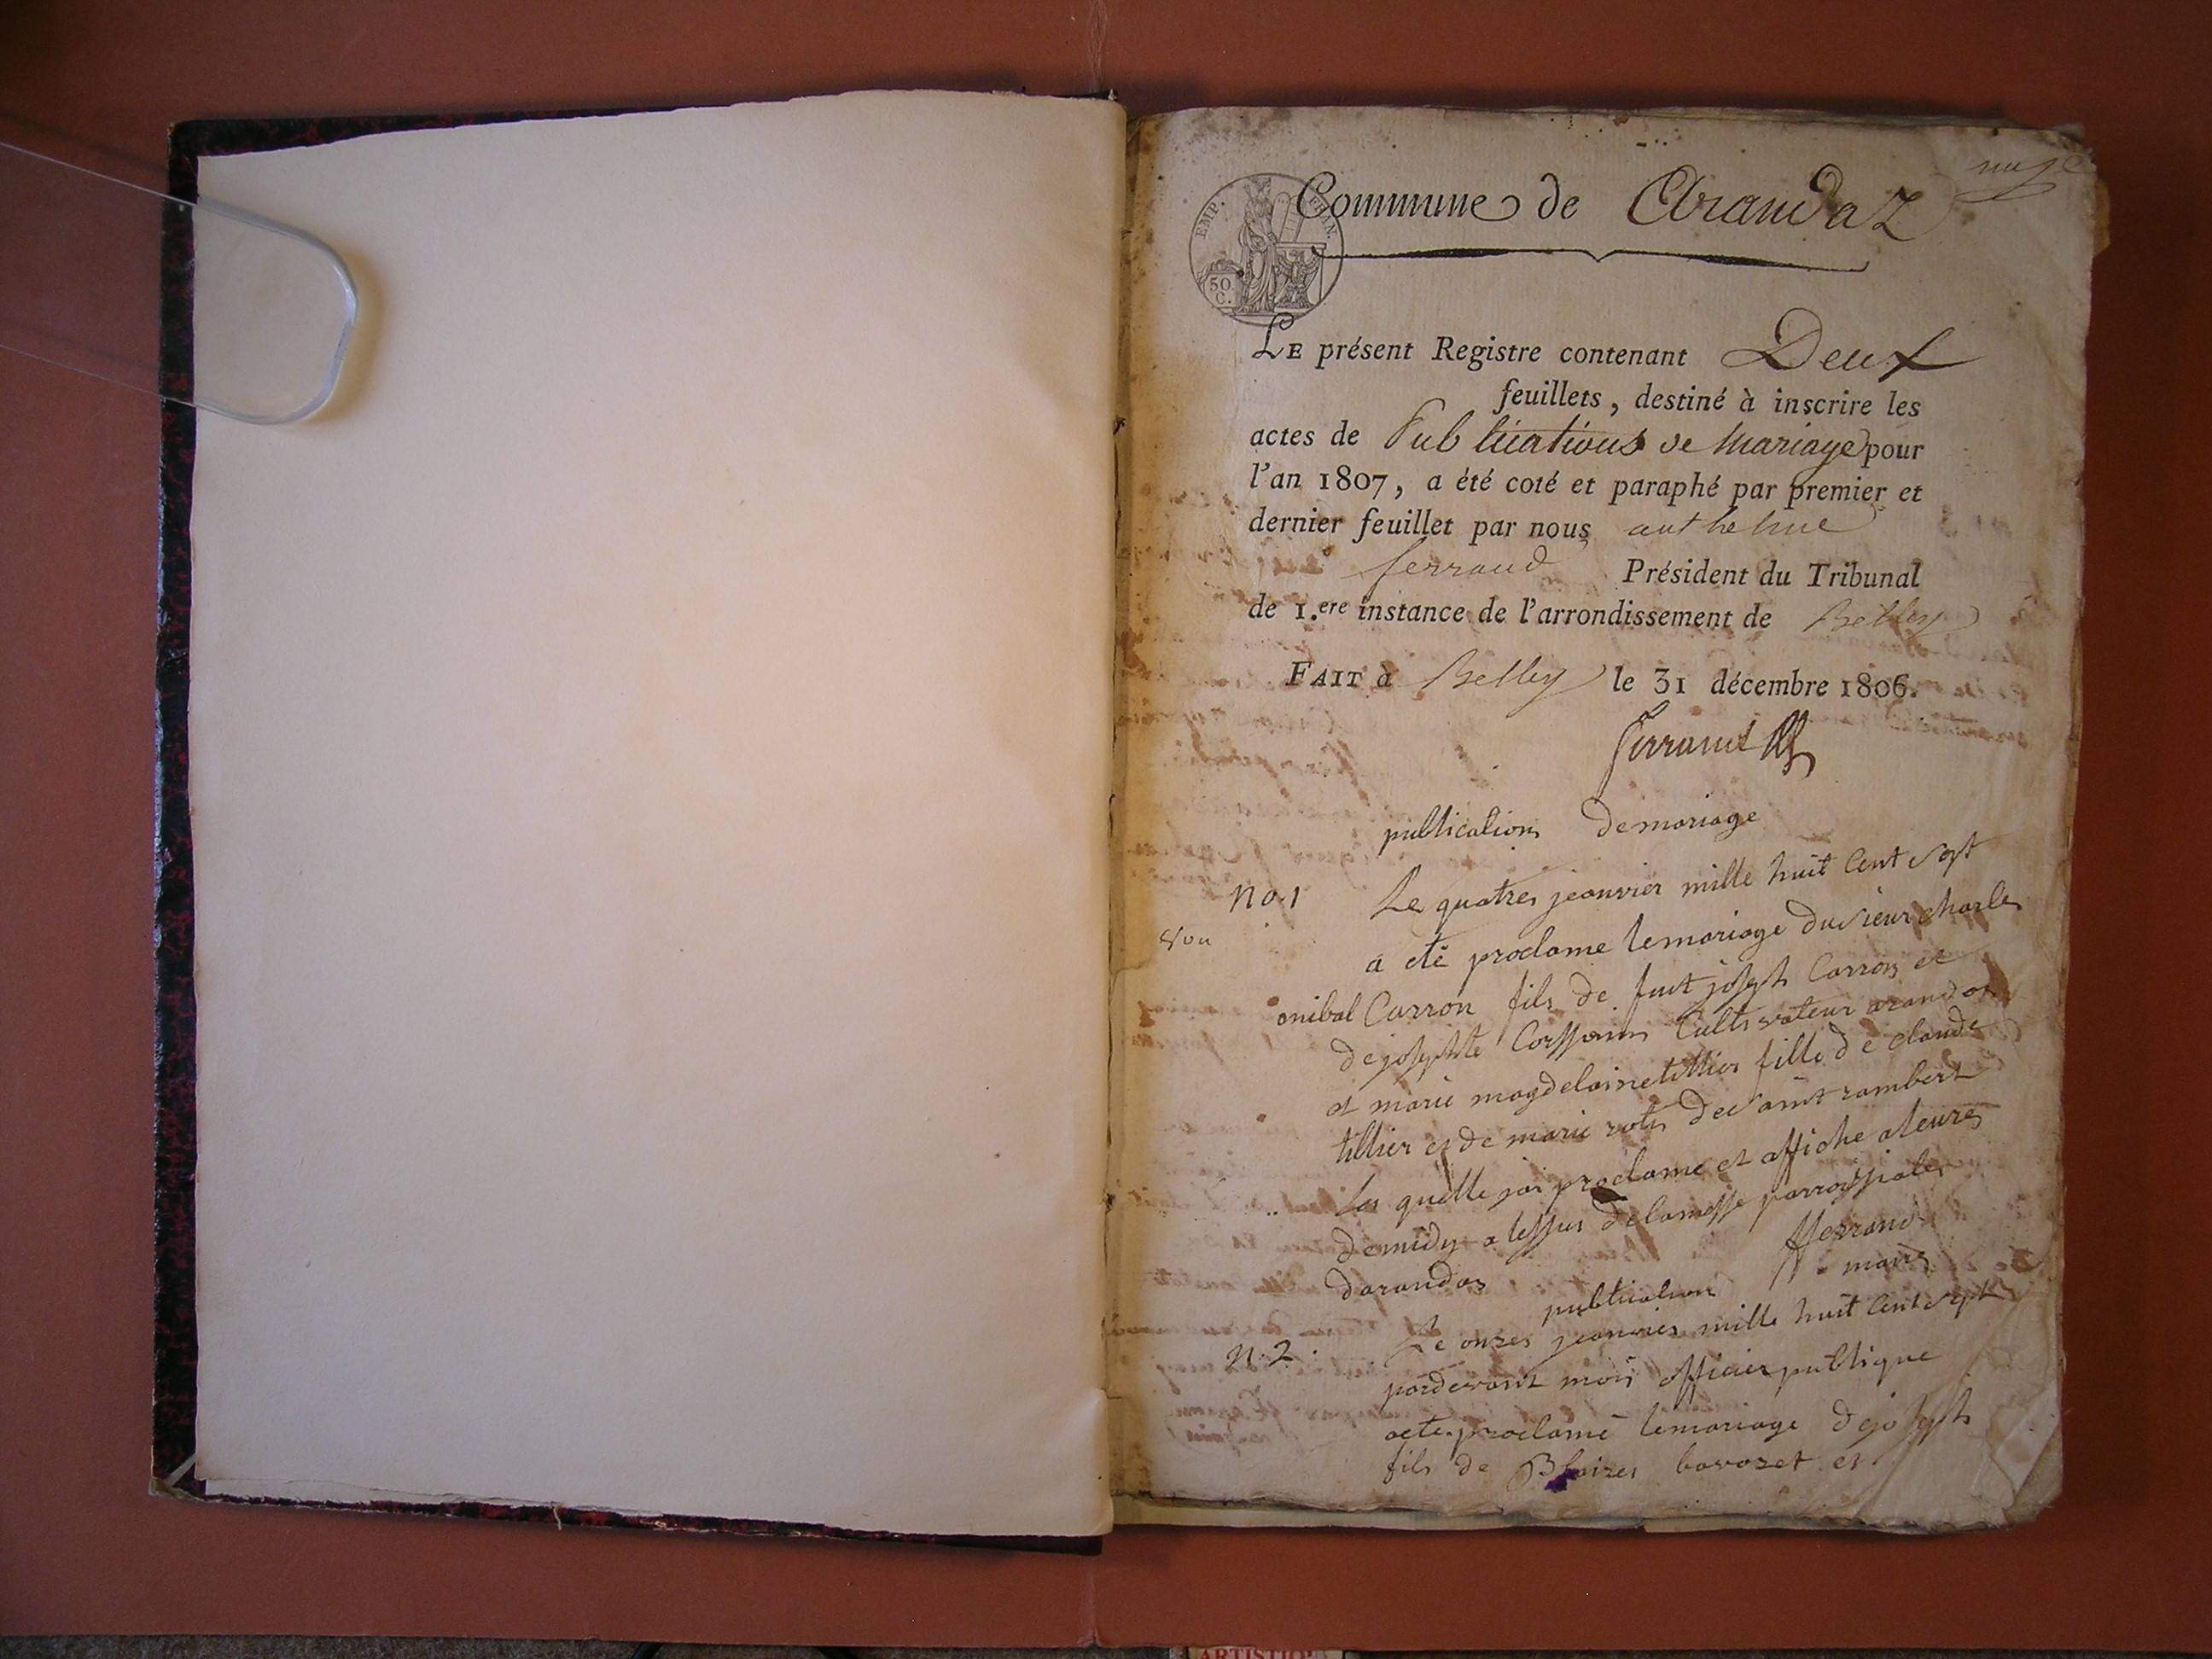 Commune de Arandaz
EMP. FRAN.
50 C.
LE présent Registre contenant Deux
feuillets, destiné à inscrire les
actes de Publications de Mariage pour
l'an 1807, a été coté et paraphé par premier et
dernier feuillet par nous anthelme
ferrand Président du Tribunal
de 1.ere instance de l'arrondissement de Belley
FAIT à Belley le 31 décembre 1806.
Ferrand
publication de mariage
No. 1 Le quatres jeanvier mille huit Cent sept
a eté proclame le mariage du sieur charles
anibal Carron fils de fut joseph Carron et
de josephte Cultivateur arandas
et marie magdelaine tillier fille de claude
tillier et de marie de saint rambert
La quelle jai proclame et affiche a leures
de midy a lessus de la messe parroissiales
darandas fferrand
maire
publication
N. 2. Le onzes jeanvies mille huit Cent septs
pardevant moi officier publique
a ete proclamé le mariage de joseph
fils de Blaizes bavozet et
ARTISTIQ